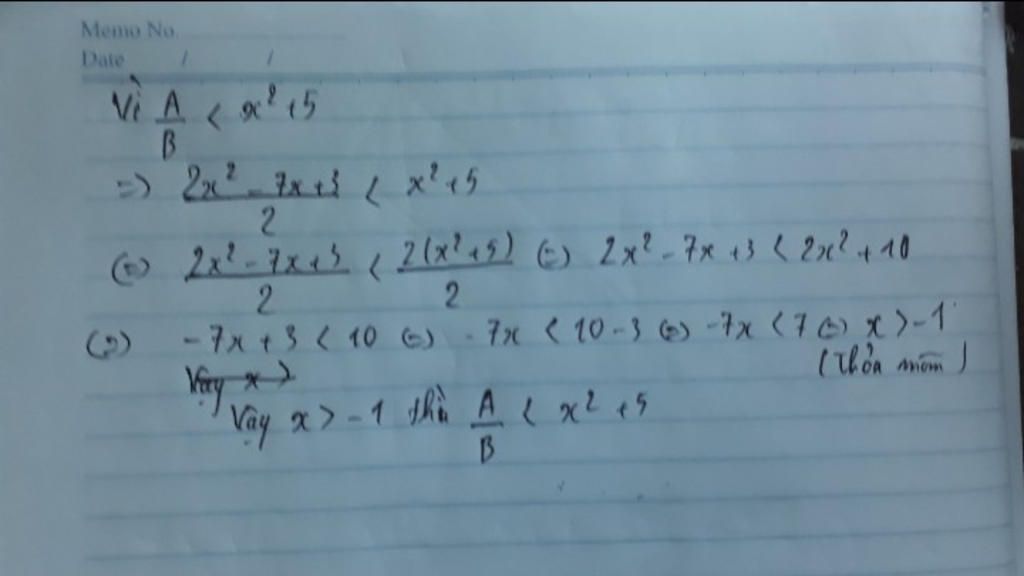 Memo No.
Date / /
Vì A/B < x² + 5
=> (2x² - 7x + 3)/2 < x² + 5
(=) (2x² - 7x + 3)/2 < 2(x² + 5)/2 (=) 2x² - 7x + 3 < 2x² + 10
(=) -7x + 3 < 10 (=) -7x < 10 - 3 (=) -7x < 7 (=) x > -1
(Thỏa mãn)
Vậy x >
Vậy x > -1 thì A/B < x² + 5